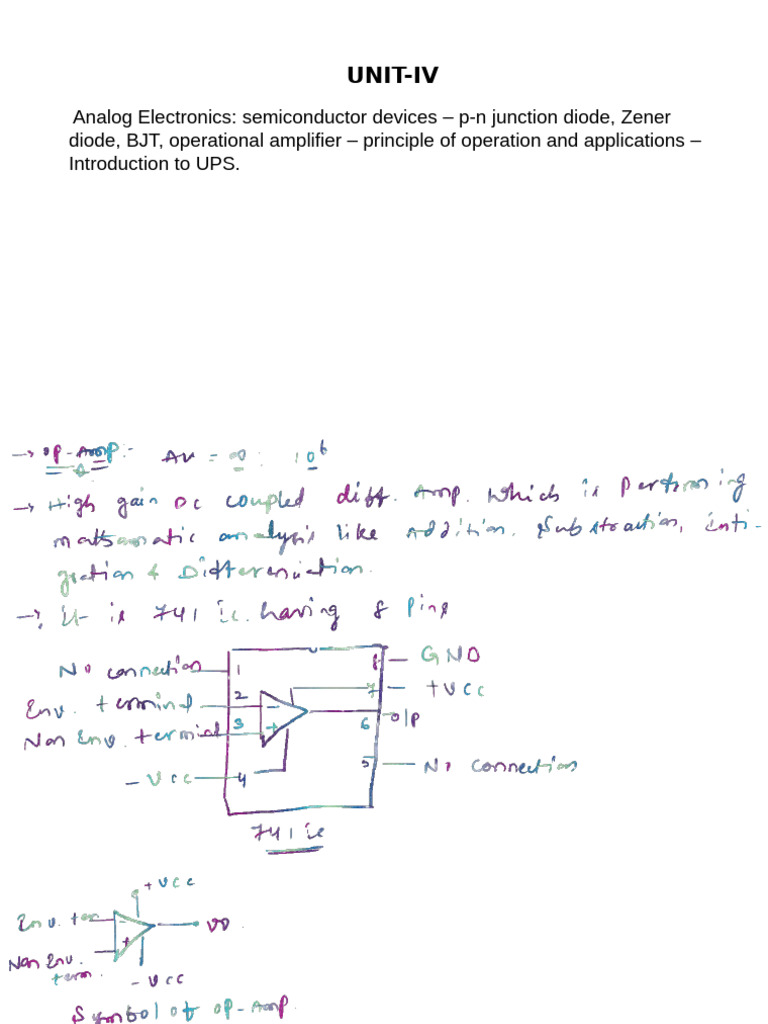 UNIT-IV
Analog Electronics: semiconductor devices – p-n junction diode, Zener
diode, BJT, operational amplifier – principle of operation and applications –
Introduction to UPS.
→ OP-Amp:- AV = ∞ : 10⁶
→ High gain DC coupled diff. Amp. which is performing
mathematic analysis like Addition, Substraction, inti-
gration & Differenciation.
→ It is 741 ic. having 8 Pins
No connection 1 8 GND
Env. terminal 2 - 7 +VCC
Non Env. terminal 3 + 6 o/p
- Vcc 4 5 No connection
741 ic
+ VCC
Env. ter - VO
Non Env. term. +
- VCC
Symbol of OP-Amp.